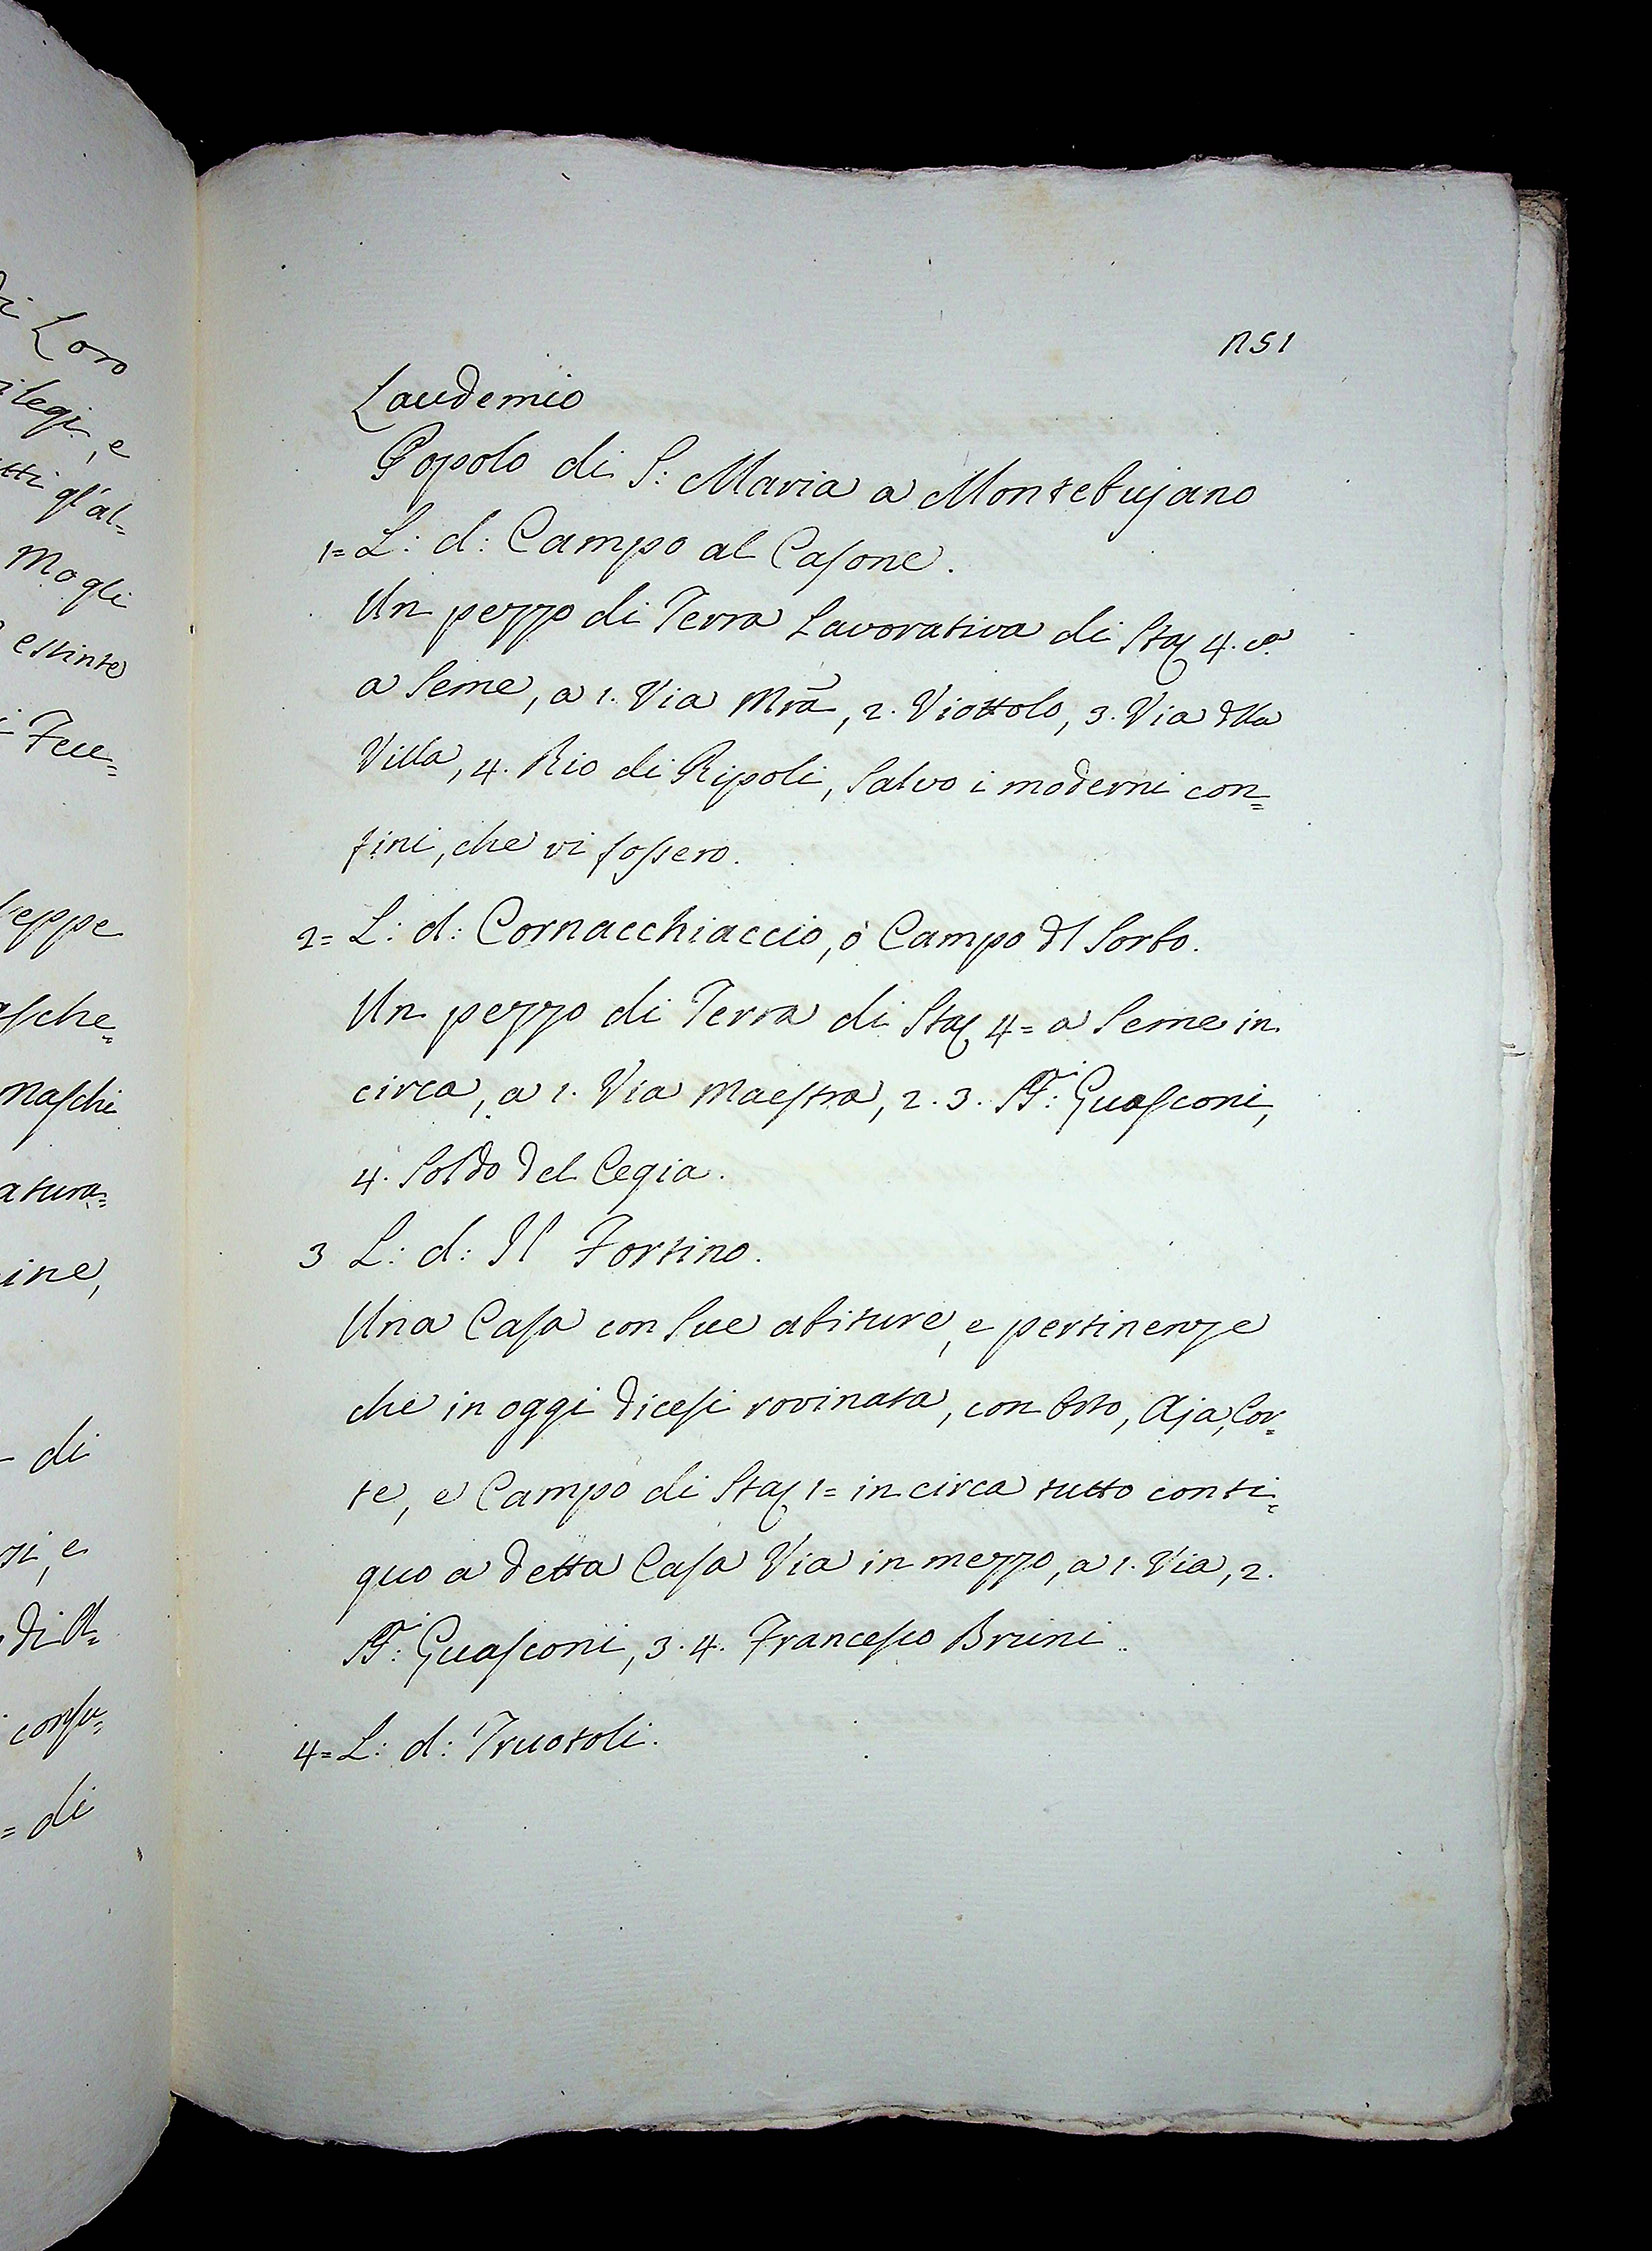 Loro
ilegj, e
tti gl'al=
Mogli
estinte
Feu=
seppe
asche=
Maschi
atura=
ine,
di
di
Laudemio
Popolo di S: Maria a Montebujano
1= L: d: Campo al Casone.
Un pezzo di Terra Lavorativa di Sta 4.
a Seme, a 1. Via Mrã, 2. Viottolo, 3. Via dlla
Villa, 4. Rio di Ripoli, Salvo i moderni con=
fini, che vi fossero.
2= L: d: Cornacchiaccio, ò Campo dl Sorbo.
Un pezzo di Terra di Sta 4= a Seme in
circa, a 1. Via Maestra, 2. 3. SS.ri: Guasconi,
4. Soldo del Cegia.
3 L: d: Il Fortino.
Una Casa con Sue abiture, e pertinenze
che in oggi dicesi rovinata, con Orto, Aja, Cor=
te, e Campo di Sta 1= in circa tutto conti=
guo a detta Casa Via in mezzo, a 1. Via, 2.
SS.ri: Guasconi, 3. 4. Francesco Bruni.
4= L: d: Truotoli.